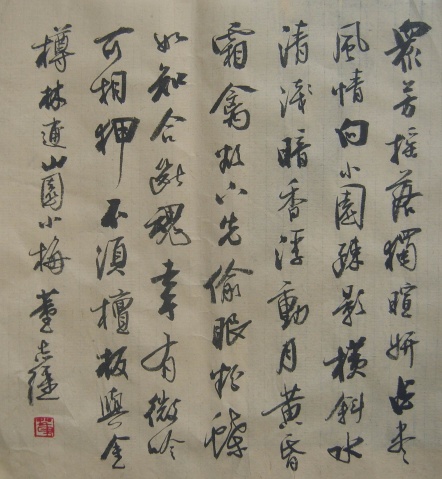 衆芳搖落獨暄妍占尽
風情向小園疎影橫斜水
清淺暗香浮動月黃昏
霜禽欲下先偷眼粉蝶
如知合斷魂幸有微吟
可相狎不須檀板與金
樽林逋山園小梅董